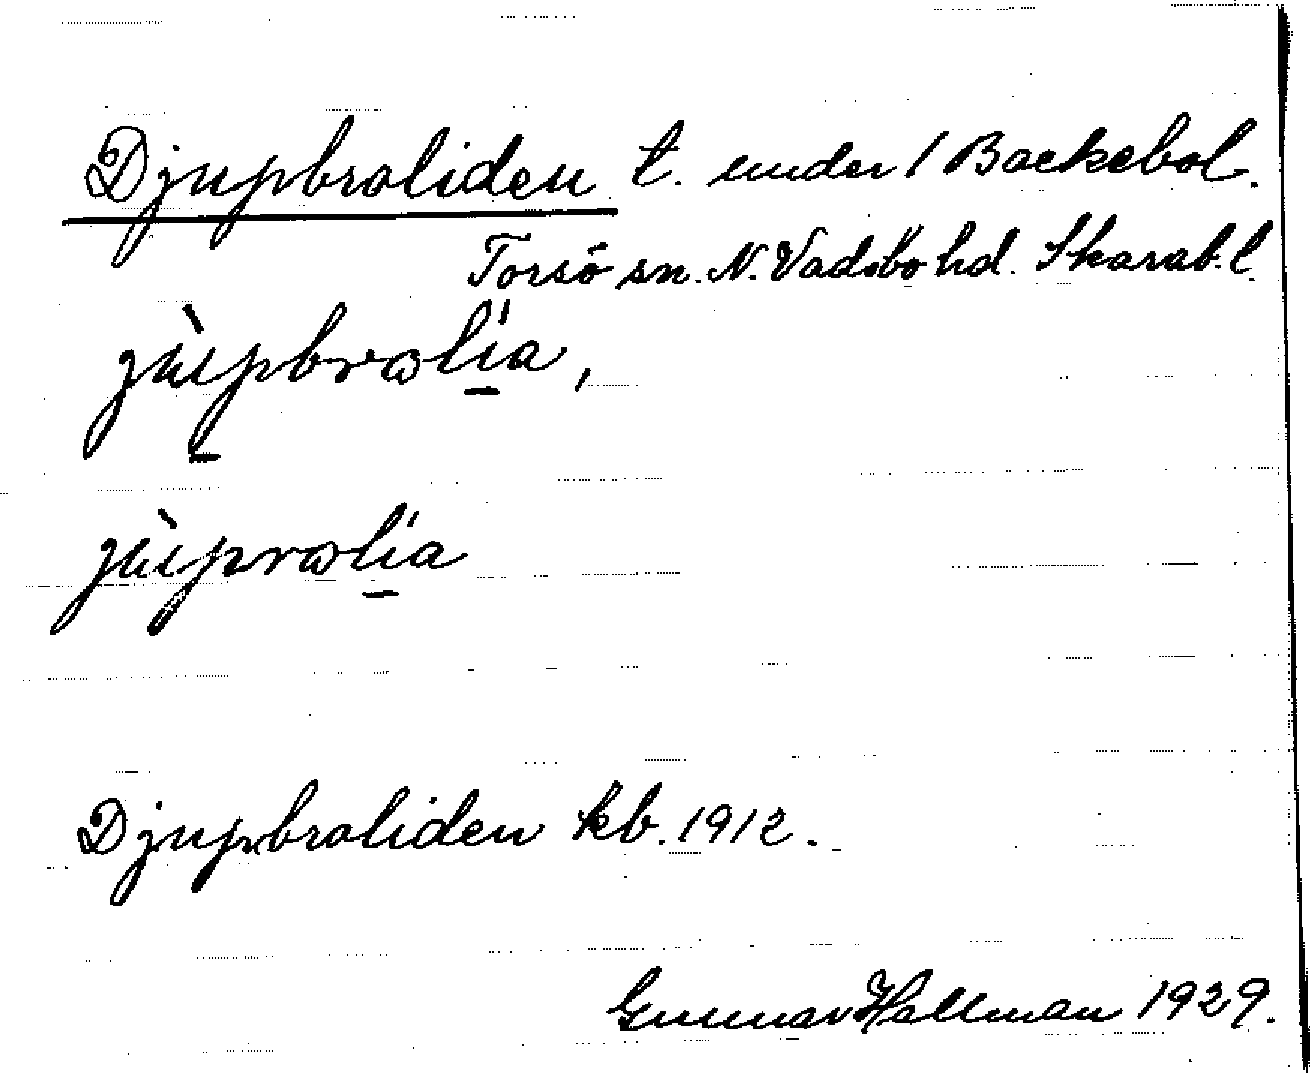 Djupbroliden t. under 1 Backebol.
Torsö sn. N. Vadsbo hd. Skarab. l.
jùpbrωlía,
jùprωlía
Djupbroliden kb. 1912.
Gunnar Hallman 1929.